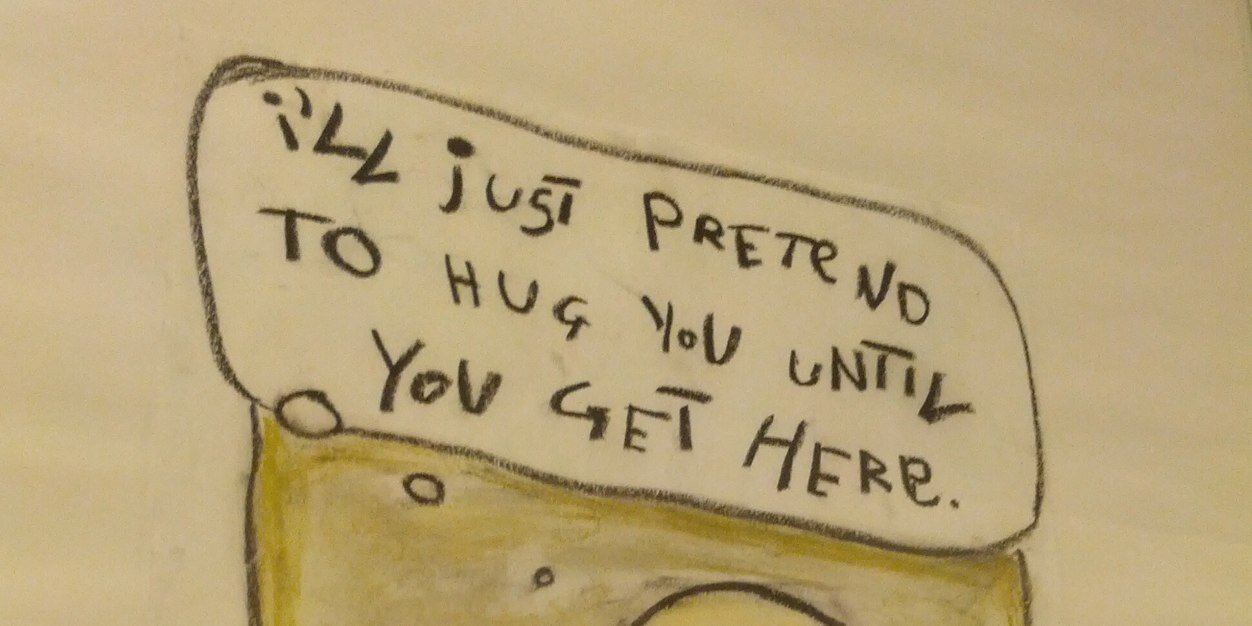 i'LL jUST PRETeND
TO HUG YOU UNTIL
YOU GET HERe.